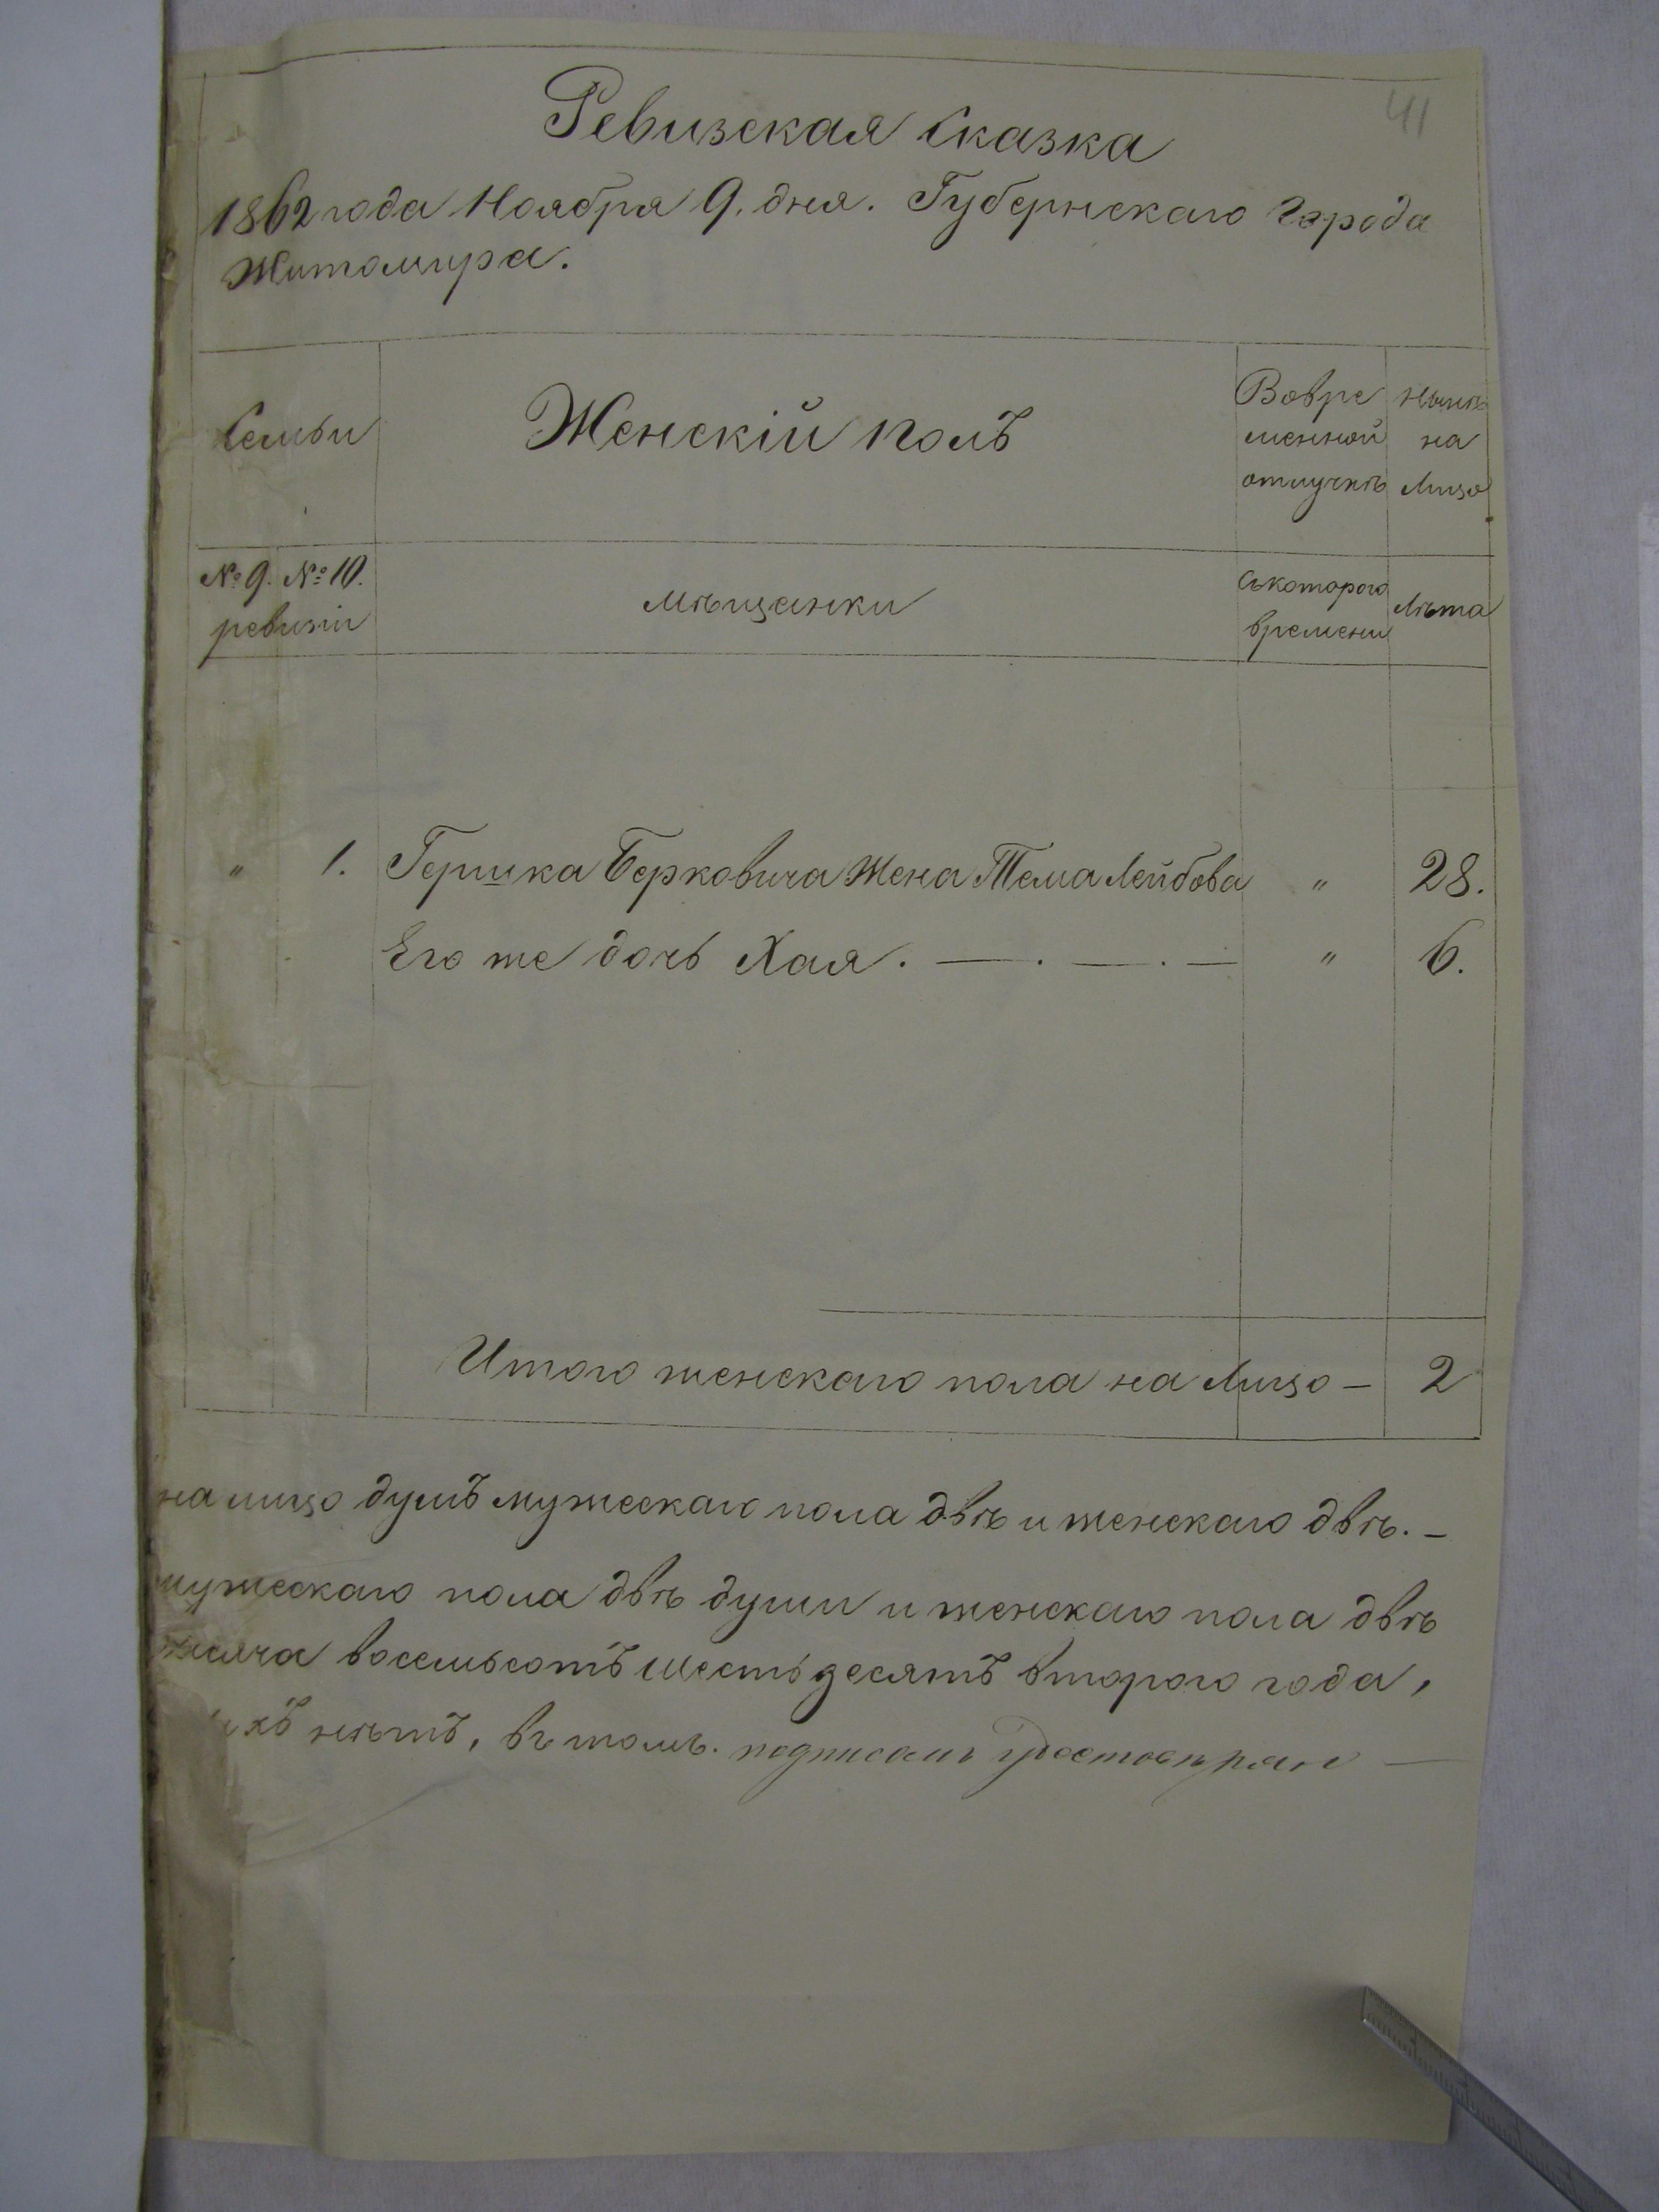 41
Ревизская Сказка
1862 года Ноября 9. дня. Губернскаго Города
Житомира.
Семьи
Женскій полъ
Вовре
менной
отлучкѣ
Нынѣ
на
Лицо
№ 9. № 10.
ревизіи
Мѣщанки
Съкоторого
времени
Лѣта
" 1. Гершка Берковича Жена Тема Лейбова " 28.
Его же дочь Хая. — . — . — " 6.
Итого женскаго пола на Лицо — 2
на лицо душъ мужескаго пола двѣ и женскаго двѣ. —
мужескаго пола двѣ души и женскаго пола двѣ
восемьсотъ шестьдесятъ втораго года,
нѣтъ, въ томъ. подписалъ